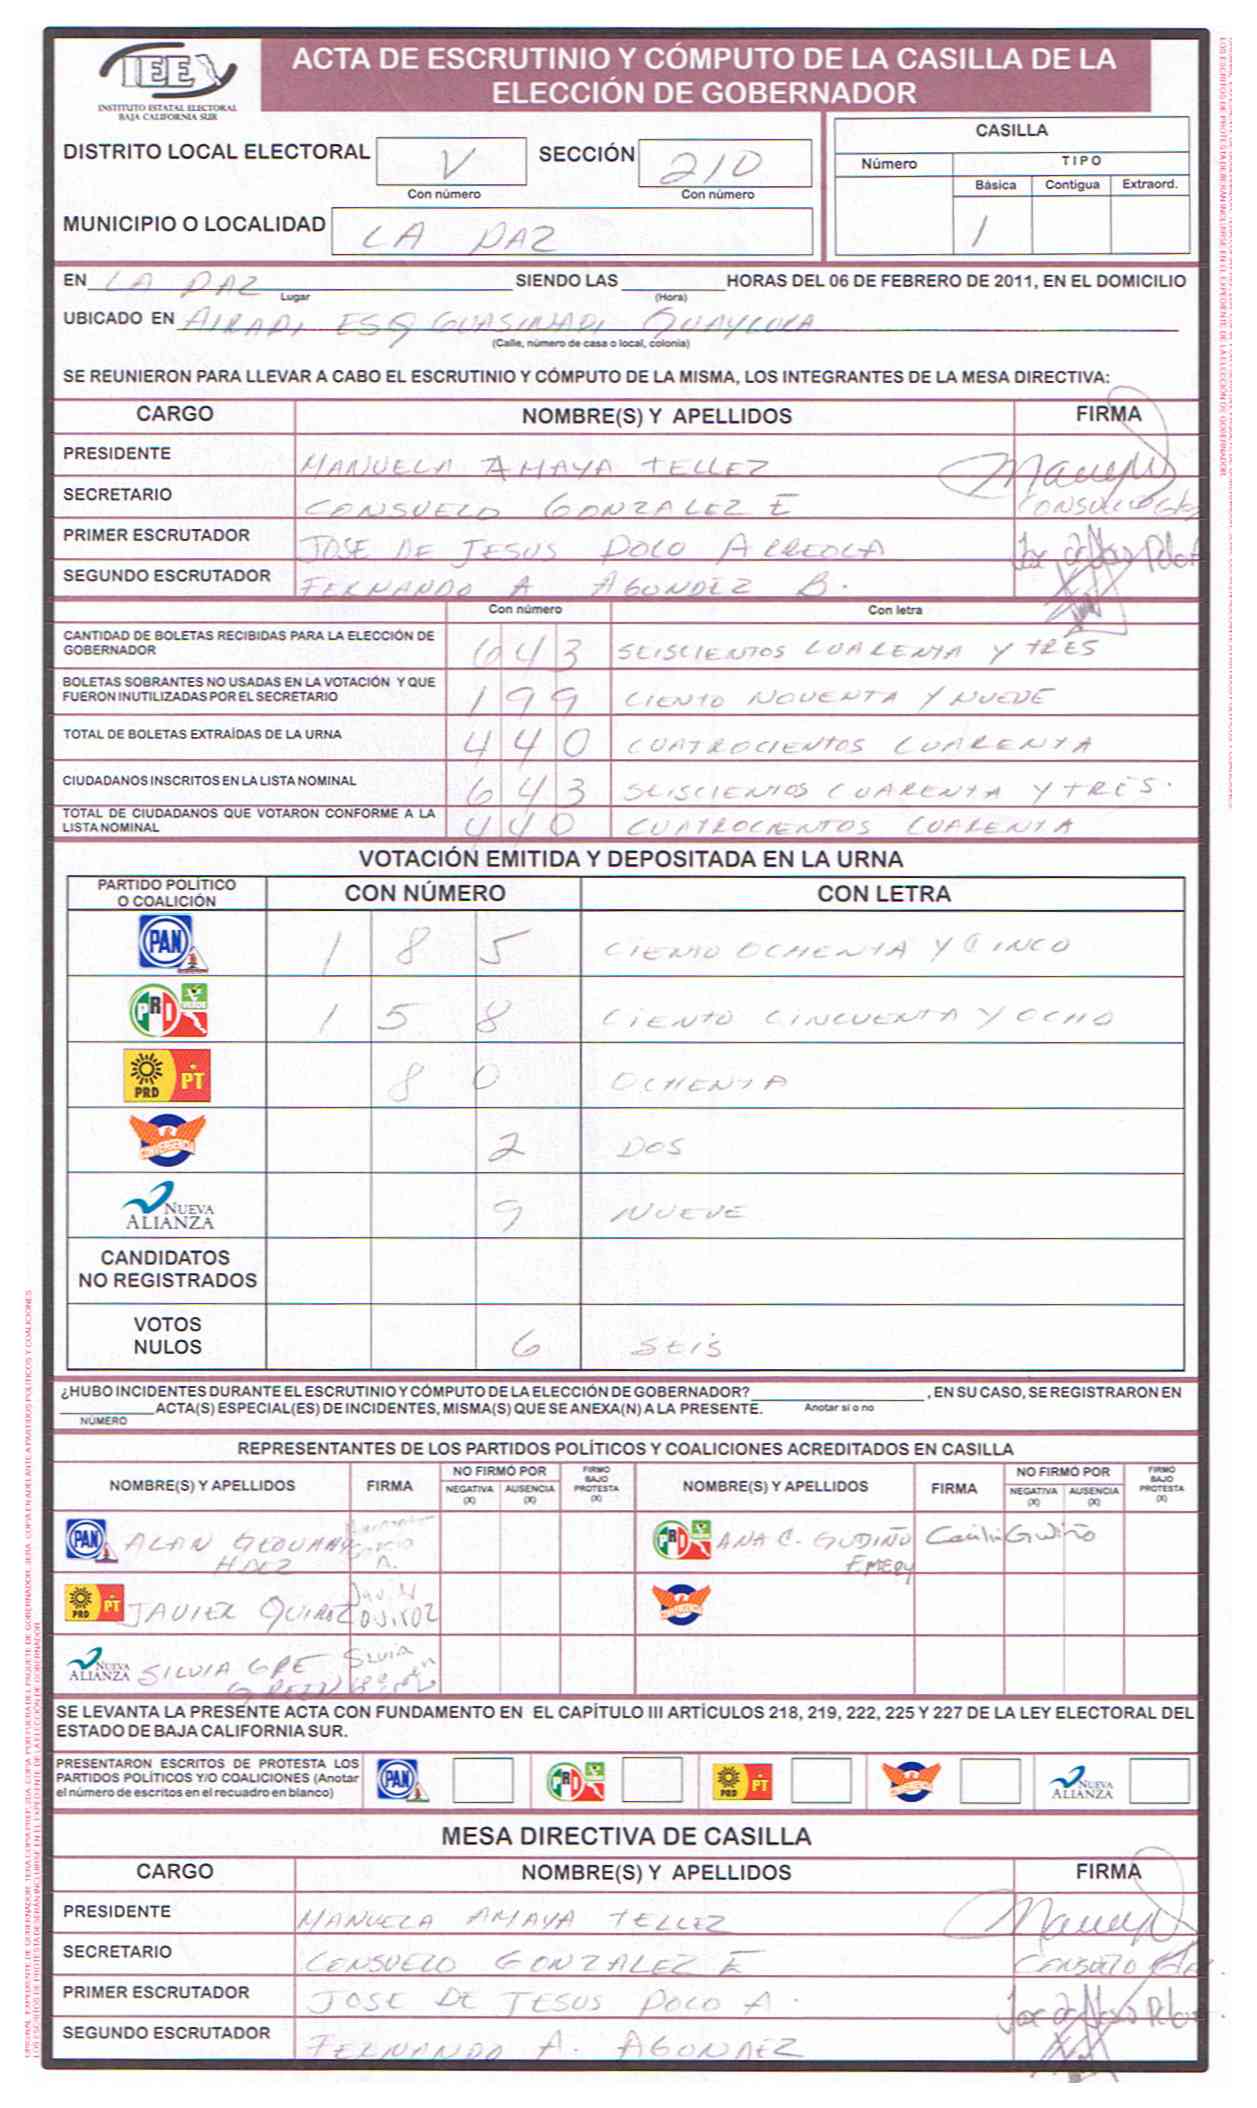 IEEX
INSTITUTO ESTATAL ELECTORAL
BAJA CALIFORNIA SUR
ACTA DE ESCRUTINIO Y CÓMPUTO DE LA CASILLA DE LA
ELECCIÓN DE GOBERNADOR
DISTRITO LOCAL ELECTORAL V SECCIÓN 210
Con número Con número
MUNICIPIO O LOCALIDAD LA PAZ
CASILLA
Número TIPO
Básica Contigua Extraord.
1
EN LA PAZ SIENDO LAS HORAS DEL 06 DE FEBRERO DE 2011, EN EL DOMICILIO
Lugar (Hora)
UBICADO EN AIRAPI ESQ GUASINAPI GUAYCURA
(Calle, número de casa o local, colonia)
SE REUNIERON PARA LLEVAR A CABO EL ESCRUTINIO Y CÓMPUTO DE LA MISMA, LOS INTEGRANTES DE LA MESA DIRECTIVA:
CARGO NOMBRE(S) Y APELLIDOS FIRMA
PRESIDENTE MANUELA AMAYA TELLEZ
SECRETARIO CONSUELO GONZALEZ E
PRIMER ESCRUTADOR JOSE DE JESUS POLO ARREOLA
SEGUNDO ESCRUTADOR FERNANDO A AGONDEZ B.
Con número Con letra
CANTIDAD DE BOLETAS RECIBIDAS PARA LA ELECCIÓN DE
GOBERNADOR 643 SEISCIENTOS CUARENTA Y TRES
BOLETAS SOBRANTES NO USADAS EN LA VOTACIÓN Y QUE
FUERON INUTILIZADAS POR EL SECRETARIO 199 CIENTO NOVENTA Y NUEVE
TOTAL DE BOLETAS EXTRAÍDAS DE LA URNA 440 CUATROCIENTOS CUARENTA
CIUDADANOS INSCRITOS EN LA LISTA NOMINAL 643 SEISCIENTOS CUARENTA Y TRES.
TOTAL DE CIUDADANOS QUE VOTARON CONFORME A LA
LISTA NOMINAL 440 CUATROCIENTOS CUARENTA
VOTACIÓN EMITIDA Y DEPOSITADA EN LA URNA
PARTIDO POLÍTICO
O COALICIÓN CON NÚMERO CON LETRA
PAN 185 CIENTO OCHENTA Y CINCO
PRI VERDE 158 CIENTO CINCUENTA Y OCHO
PRD PT 80 OCHENTA
CONVERGENCIA 2 DOS
NUEVA ALIANZA 9 NUEVE
CANDIDATOS
NO REGISTRADOS
VOTOS
NULOS 6 SEIS
¿HUBO INCIDENTES DURANTE EL ESCRUTINIO Y CÓMPUTO DE LA ELECCIÓN DE GOBERNADOR? , EN SU CASO, SE REGISTRARON EN
ACTA(S) ESPECIAL(ES) DE INCIDENTES, MISMA(S) QUE SE ANEXA(N) A LA PRESENTE. Anotar si o no
NÚMERO
REPRESENTANTES DE LOS PARTIDOS POLÍTICOS Y COALICIONES ACREDITADOS EN CASILLA
NOMBRE(S) Y APELLIDOS FIRMA NO FIRMÓ POR NEGATIVA (X) AUSENCIA (X) FIRMÓ BAJO PROTESTA (X) NOMBRE(S) Y APELLIDOS FIRMA NO FIRMÓ POR NEGATIVA (X) AUSENCIA (X) FIRMO BAJO PROTESTA (X)
PAN ALAN PRI VERDE ANA C. GUDIÑO
EMERY
PRD PT JAVIER QUIROZ
NUEVA ALIANZA SILVIA GPE
SE LEVANTA LA PRESENTE ACTA CON FUNDAMENTO EN EL CAPÍTULO III ARTÍCULOS 218, 219, 222, 225 Y 227 DE LA LEY ELECTORAL DEL
ESTADO DE BAJA CALIFORNIA SUR.
PRESENTARON ESCRITOS DE PROTESTA LOS
PARTIDOS POLÍTICOS Y/O COALICIONES (Anotar
el número de escritos en el recuadro en blanco)
PAN PRI VERDE PRD PT NUEVA ALIANZA
MESA DIRECTIVA DE CASILLA
CARGO NOMBRE(S) Y APELLIDOS FIRMA
PRESIDENTE MANUELA AMAYA TELLEZ
SECRETARIO CONSUELO GONZALEZ E
PRIMER ESCRUTADOR JOSE DE JESUS POLO A.
SEGUNDO ESCRUTADOR FERNANDO A. AGONDEZ